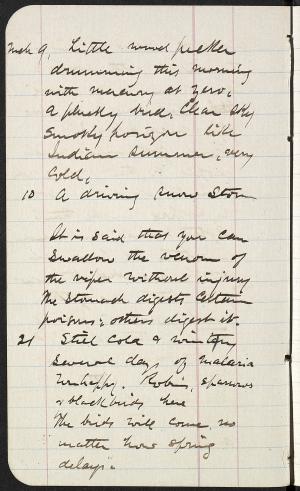 Mch 9, Little wood pecker
drumming this morning
with mercury at zero;
a plucky bird, Clear sky
smoky horizon like
Indian summer, very
cold,
10 A driving snow storm
It is said that you can
swallow the venom of
the viper without injury
the stomach digests certain
poisons; others digest it.
21 Still cold & wintery
several days of malaria
unhappy. Robins, sparrows
& blackbirds here
The birds will come, no
matter how spring
delays.